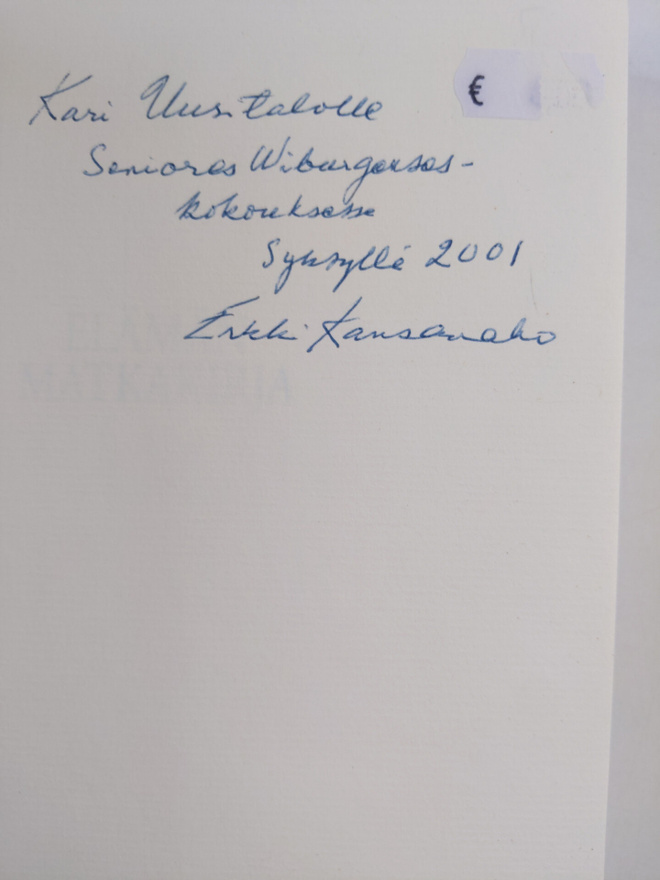 Kari Uusitalolle
€
Seniores Wiburgenses-
kokouksessa
Syksyllä 2001
Erkki Kansanaho
MATKAKIRJA